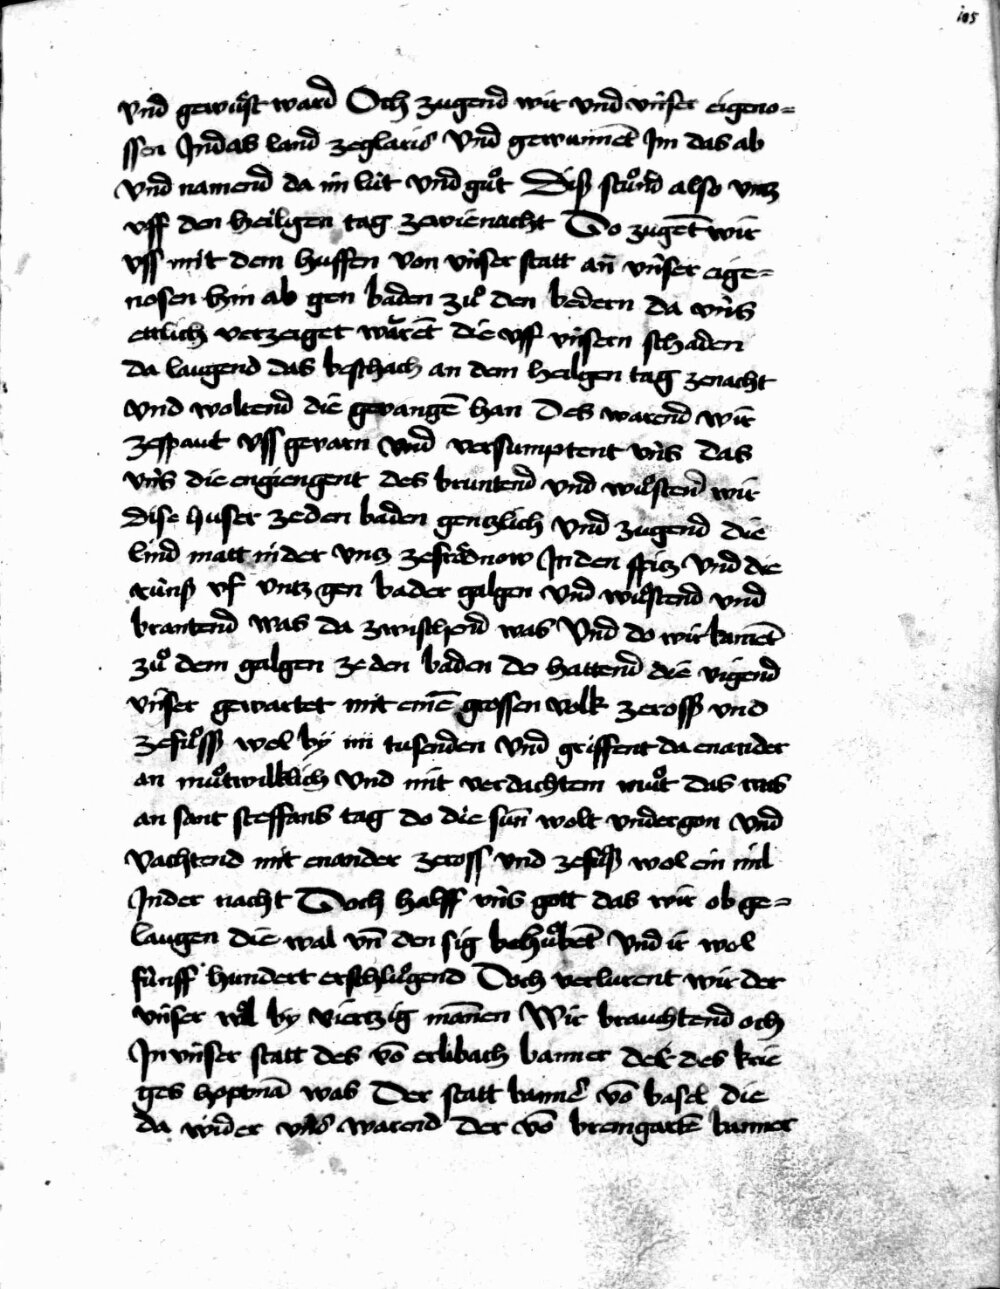 105
vnd gewuͤst ward Och zugend wir vnd vnser eigeno-
ssen Jndas land zeglaris vnd gewunnēt Jm das ab
vnd namend da in lüt vnd guͦt Diß stuͦnd also vntz
vff den heiligen tag zewienacht Do zugēt wir
vss mit dem huffen von vnser statt an vnser eige-
nosen hin ab gen baden zuͦ den bedern da vns
ettlich verzeiget warēt die vff vnsern schaden
da laugend das beschach an dem heilgen tag zenacht
vnd woltend die gevangē han Des warend wir
zespaut vss gevarn vnd versumptent vns das
vns die engiengent des bruntend vnd wuͦstend wir
dise huser zeden baden gentzlich vnd zugend die
lind matt nider vntz zefrödnow Jnden spitz vnd die
rünß vf vntz gen bader galgen vnd wuͦstend vnd
brantend was da zwischend was Vnd do wir kamēt
zuͦ dem galgen zeden baden do hattend die vigend
vnser gewartet mit einē grossen volk zeross vnd
zefuͦss wol by iiii tusenden vnd griffent da enander
an muͦtwilklich vnd mit verdachtem muͦt das was
an sant steffans tag do die sun wolt vndergon vnd
vachtend mit enander zeross vnd zefuͦß wol ein mil
Jnder nacht Doch halff vns gott das wir ob ge-
laugen die wal vn̄ den sig behuͦbēt vnd ir wol
fünff hundert erschluͦgend Doch verlurent wir der
vnser wol by viertzig mannen Wir brauchtend och
Jn vnser statt des vō erlibach banner der des krie
ges hoptmā was Der statt banner vō basel die
da wider vns warend Der vō bremgartē banner